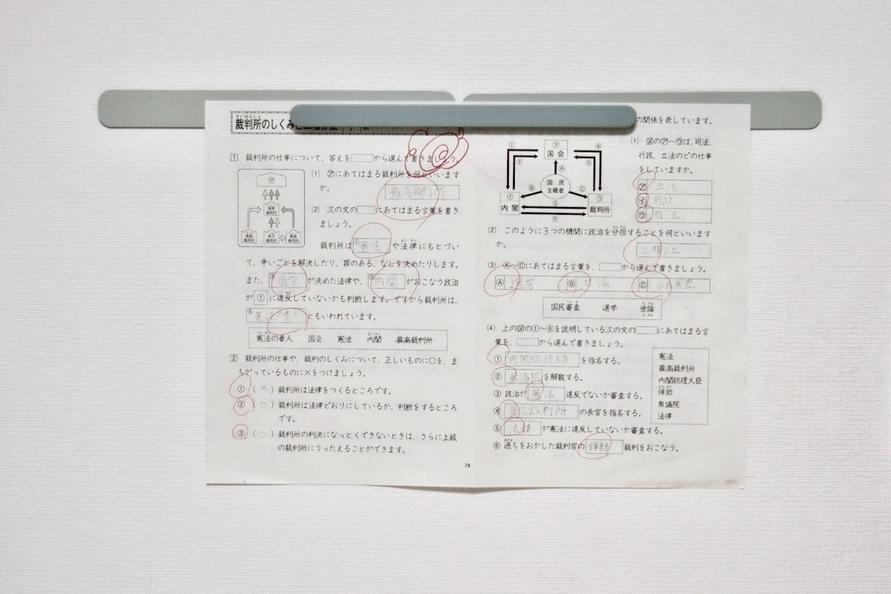 裁判所のしくみと
1 裁判所の仕事について、答えを□から選んで書きましょう。
(1) ㋐にあてはまる裁判所を何といいます
か。
最高裁判所
(2) 次の文の□にあてはまる言葉を書き
ましょう。
裁判所は 憲法 や法律にもとづい
て、争いごとを解決したり、罪のある、なしを決めたりします。
また、 国会 が決めた法律や、 内閣 がおこなう政治
が ① に違反していないかも判断します。ですから裁判所は、
ともいわれています。
憲法の番人 国会 憲法 内閣 最高裁判所
2 裁判所の仕事や、裁判のしくみについて、正しいものに○を、ま
ちがっているものに×をつけましょう。
① (×) 裁判所は法律をつくるところです。
② (○) 裁判所は法律どおりにしているか、判断をするところ
です。
③ (○) 裁判所の判決になっとくできないときは、さらに上級
の裁判所にうったえることができます。
74
の関係を表しています。
㋐
国会
国民
主権者
㋑
内閣
㋒
裁判所
(1) 図の㋐~㋒は、司法、
行政、立法のどの仕事
をしていますか。
㋐ 立法
㋑ 行政
㋒ 司法
(2) このように3つの機関に政治を分担することを何といいます
か。
三権分立
(3) Ⓐ~Ⓒにあてはまる言葉を、□から選んで書きましょう。
Ⓐ 選挙 Ⓑ 世論 Ⓒ 国民審査
国民審査 選挙 世論
(4) 上の図の①~⑥を説明している次の文の□にあてはまる言
葉を、□から選んで書きましょう。
① 内閣総理大臣 を指名する。
② 衆議院 を解散する。
③ 政治が 憲法 違反でないか審査する。
④ 最高裁判所 の長官を指名する。
⑤ 法律 が憲法に違反していないか審査する。
⑥ 過ちをおかした裁判官の 弾劾 裁判をおこなう。
憲法
最高裁判所
内閣総理大臣
弾劾
衆議院
法律